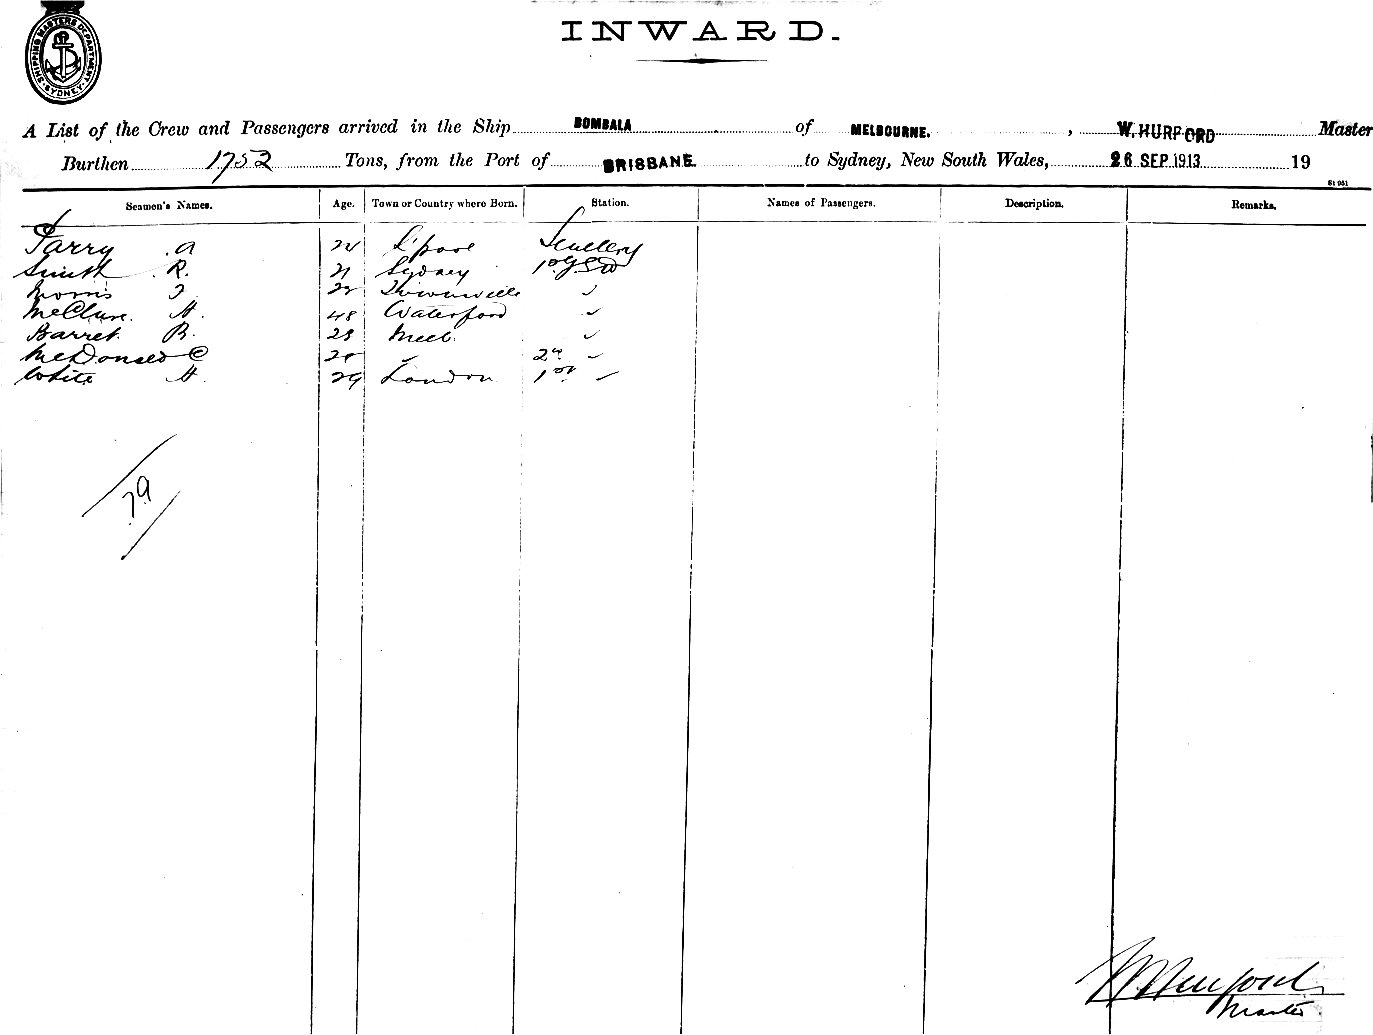 SHIPPING MASTERS DEPARTMENT SYDNEY
INWARD.
A List of the Crew and Passengers arrived in the Ship BOMBALA of MELBOURNE. , W. HURFORD Master
Burthen 1752 Tons, from the Port of BRISBANE. to Sydney, New South Wales, 26 SEP. 1913 19
St 951
Seamen's Names. Age. Town or Country where Born. Station. Names of Passengers. Description. Remarks.
Parry A L'pool
Smith R. 21 Sydney 1st
Morris Townsville
McClure. H. 48 Waterford
Barret. B. 28 Melb.
McDonald C 2nd
White H. 29 London 1st
79
W Hurford
Master